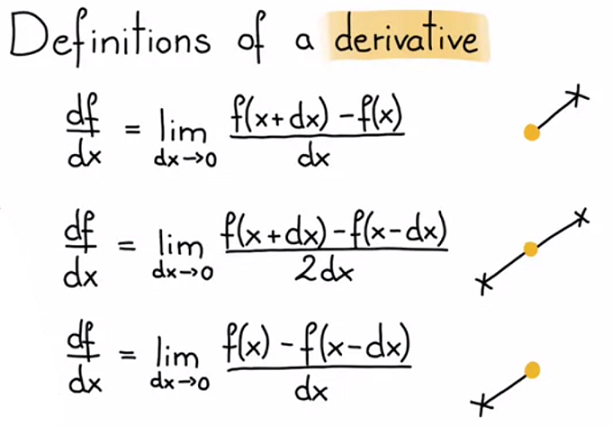 Definitions of a derivative
df/dx = lim dx→0 f(x+dx) - f(x) / dx
df/dx = lim dx→0 f(x+dx) - f(x-dx) / 2dx
df/dx = lim dx→0 f(x) - f(x-dx) / dx